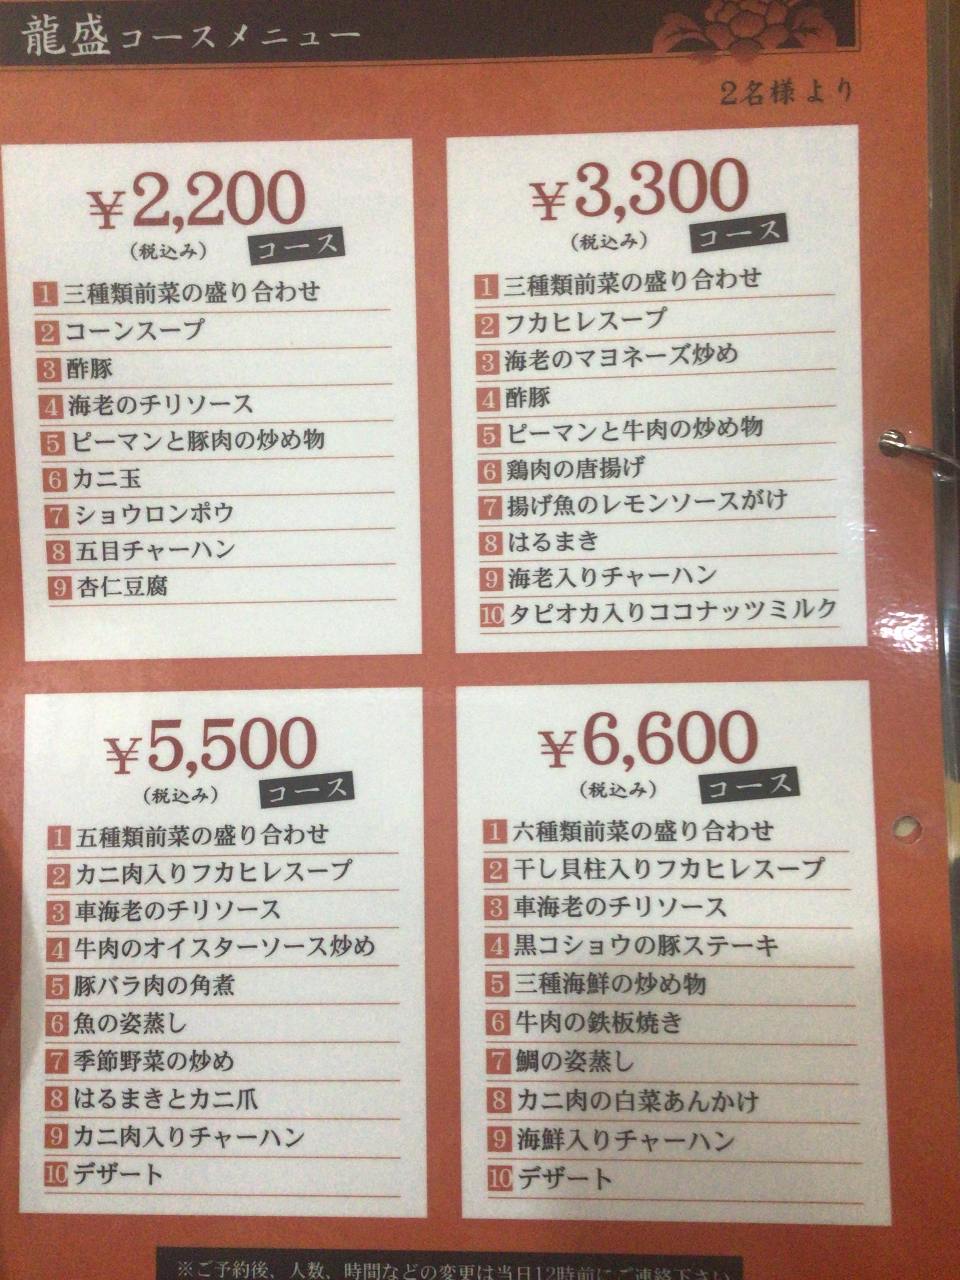 龍盛コースメニュー
2名様より
¥2,200
(税込み) コース
1 三種類前菜の盛り合わせ
2 コーンスープ
3 酢豚
4 海老のチリソース
5 ピーマンと豚肉の炒め物
6 カニ玉
7 ショウロンポウ
8 五目チャーハン
9 杏仁豆腐
¥3,300
(税込み) コース
1 三種類前菜の盛り合わせ
2 フカヒレスープ
3 海老のマヨネーズ炒め
4 酢豚
5 ピーマンと牛肉の炒め物
6 鶏肉の唐揚げ
7 揚げ魚のレモンソースがけ
8 はるまき
9 海老入りチャーハン
10 タピオカ入りココナッツミルク
¥5,500
(税込み) コース
1 五種類前菜の盛り合わせ
2 カニ肉入りフカヒレスープ
3 車海老のチリソース
4 牛肉のオイスターソース炒め
5 豚バラ肉の角煮
6 魚の姿蒸し
7 季節野菜の炒め
8 はるまきとカニ爪
9 カニ肉入りチャーハン
10 デザート
¥6,600
(税込み) コース
1 六種類前菜の盛り合わせ
2 干し貝柱入りフカヒレスープ
3 車海老のチリソース
4 黒コショウの豚ステーキ
5 三種海鮮の炒め物
6 牛肉の鉄板焼き
7 鯛の姿蒸し
8 カニ肉の白菜あんかけ
9 海鮮入りチャーハン
10 デザート
※ご予約後、人数、時間などの変更は当日12時前にご連絡下さい